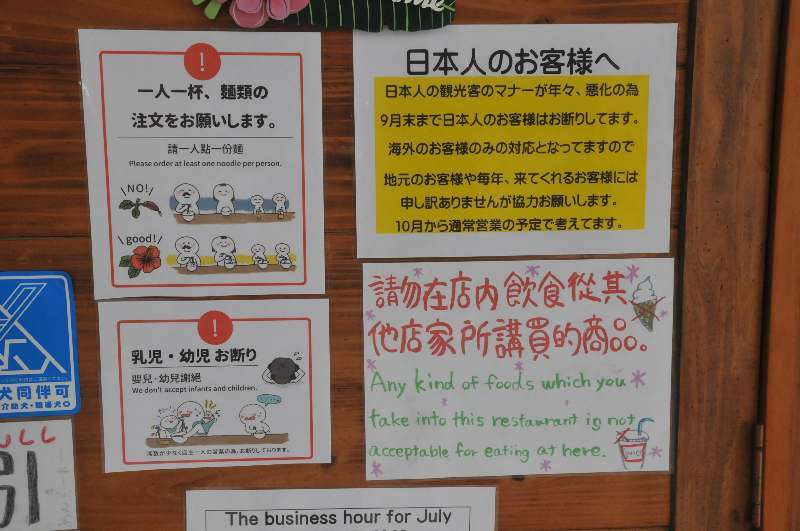 一人一杯、麺類の
注文をお願いします。
請一人點一份麵
Please order at least one noodle per person.
NO!
good!
日本人のお客様へ
日本人の観光客のマナーが年々、悪化の為
9月末まで日本人のお客様はお断りしてます。
海外のお客様のみの対応となってますので
地元のお客様や毎年、来てくれるお客様には
申し訳ありませんが協力お願いします。
10月から通常営業の予定で考えてます。
乳児・幼児 お断り
嬰兒・幼兒謝絕
We don't accept infants and children.
席数が少なく店主一人の営業の為、お断りしております。
請勿在店内飲食從其
他店家所講買的商品。
Any kind of foods which you
take into this restaurant is not
acceptable for eating at here.
犬同伴可
介助犬・聴導犬
The business hour for July